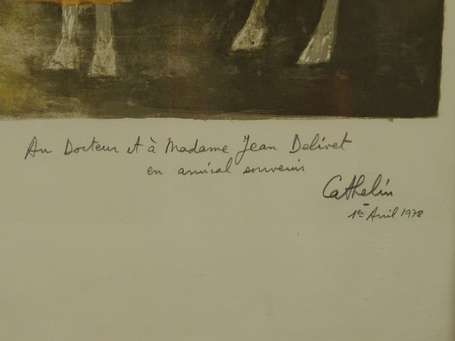 Au Docteur et à Madame Jean Delivet
en amical souvenir
Cathelin
1er Avril 1978